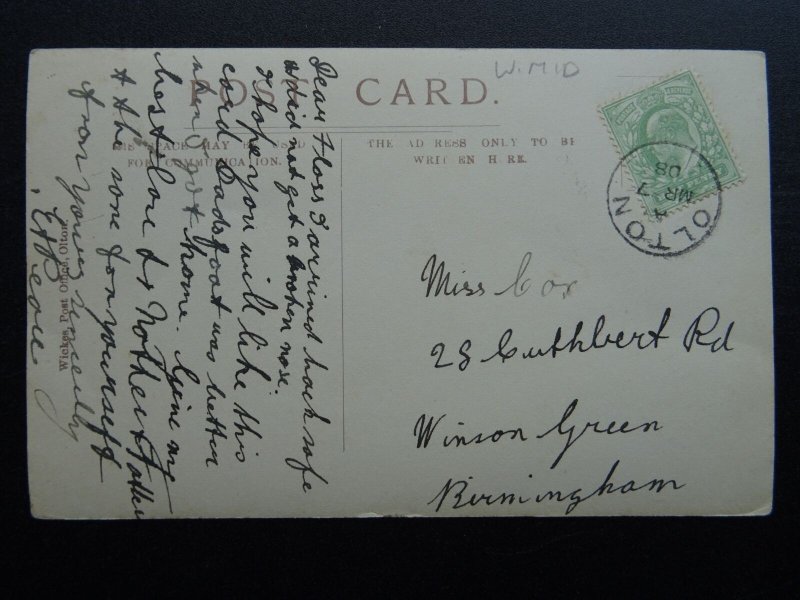 W. MID
POST CARD.
THIS SPACE MAY BE USED
FOR COMMUNICATION.
THE ADDRESS ONLY TO BE
WRITTEN HERE.
Dear Floss I arrived back safe
& did not get a broken nose.
I hope you will like this
card. Dads foot was better
when I got home. Give my
best love to Mother & Father
& the same for yourself
from yours sincerely
E
Wickes, Post Office, Olton.
OLTON
A
MR 7
08
Miss Cox
28 Cuthbert Rd
Winson Green
Birmingham